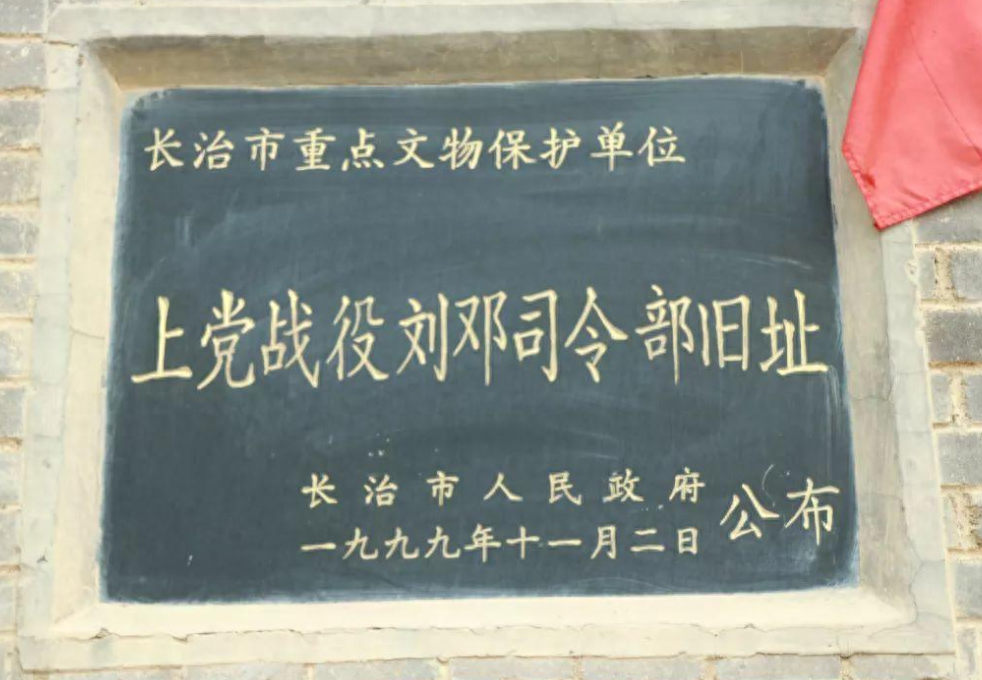 长治市重点文物保护单位
上党战役刘邓司令部旧址
长治市人民政府
一九九九年十一月二日
公布